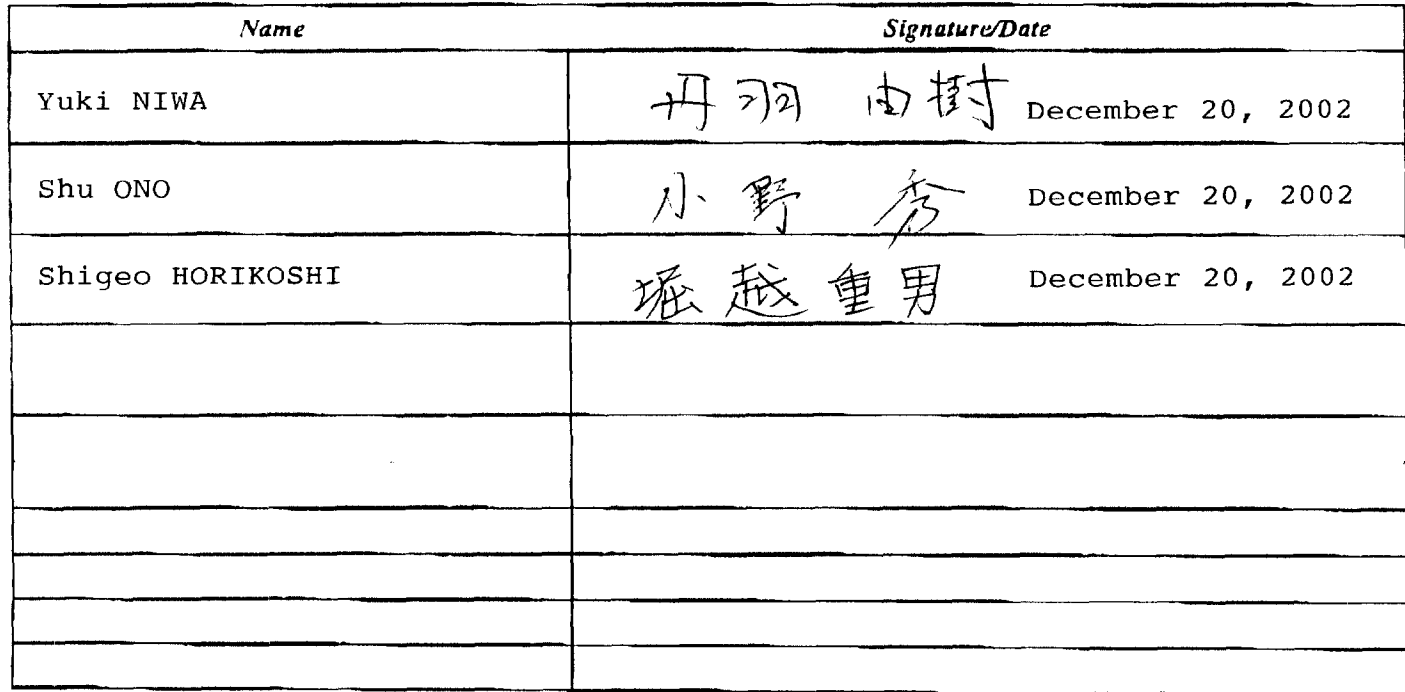 Name Signature/Date
Yuki NIWA 丹羽 由樹 December 20, 2002
Shu ONO 小野 秀 December 20, 2002
Shigeo HORIKOSHI 堀越重男 December 20, 2002